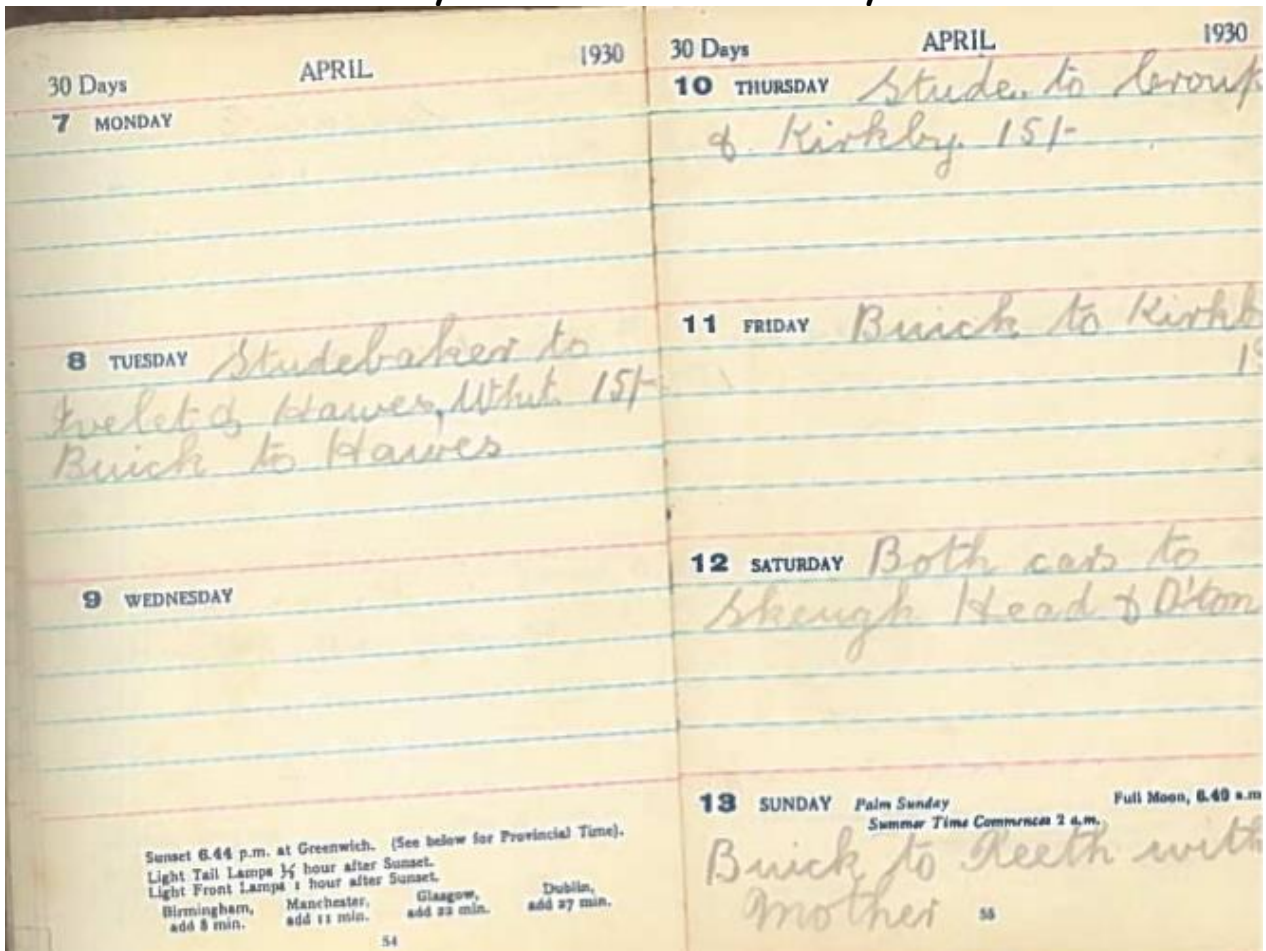 30 Days APRIL 1930
7 MONDAY
8 TUESDAY Studebaker to
Ivelet & Hawes, Whit. 15/-
Buick to Hawes
9 WEDNESDAY
Sunset 6.44 p.m. at Greenwich. (See below for Provincial Time).
Light Tail Lamps ½ hour after Sunset.
Light Front Lamps 1 hour after Sunset.
Birmingham, Manchester, Glasgow, Dublin,
add 8 min. add 11 min. add 22 min. add 27 min.
54
30 Days APRIL 1930
10 THURSDAY Stude. to
& Kirkby. 15/-
11 FRIDAY Buick to Kirkb
12 SATURDAY Both cars to
Skeugh Head & D'ton
13 SUNDAY Palm Sunday Full Moon, 6.49 a.m
Summer Time Commences 2 a.m.
Buick to Reeth with
Mother 55